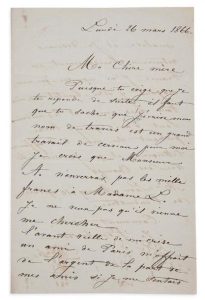 Lundi 26 mars 1866.
Ma Chère mère
Puisque tu exige que je
te réponde de suite, il faut
que tu sache que j'écrire mon
nom de travers est un grand
travail de cerveau pour moi
Je crois que Monsieur
A. n'enverras pas les mille
francs à Madame L.
Je ne veux pas qu'il vienne
me chercher
l'avant veille de ma crise
un ami de Paris m'offrait
de l'argent de la part de
mes amis si je me sentais